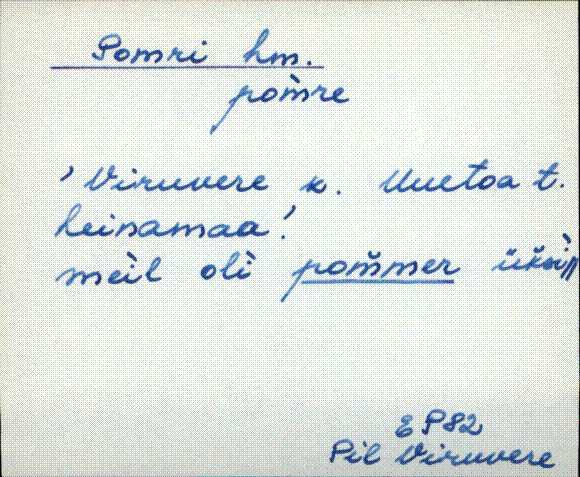 Pomri hm.
pom̀re
'Viruvere k. Uuetoa t.
heinamaa.'
mèil olì pom̆mer
E P82
Pil Viruvere